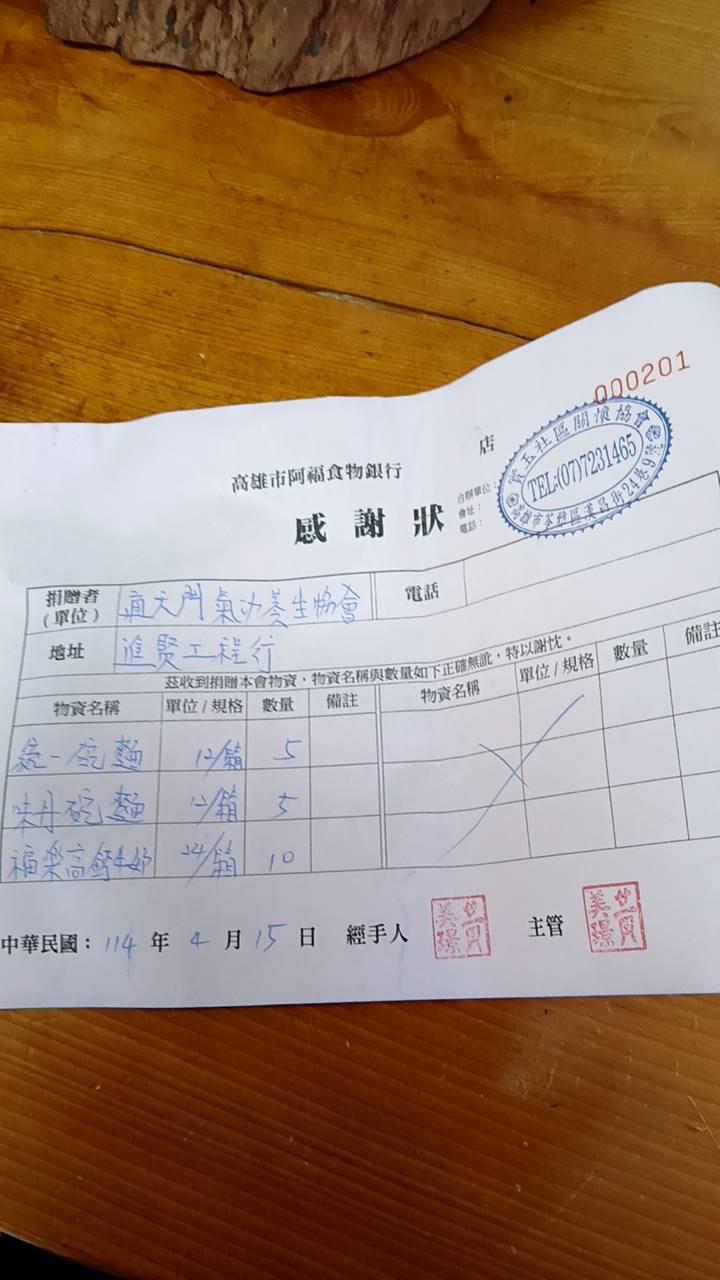 000201
店
高雄市阿福食物銀行
感謝狀
合辦單位：
會址：
電話：
社區關懷協會
TEL:(07)7231465
高雄市苓雅區漢昌街24巷9號
捐贈者(單位) 通天門氣功養生協會 電話
地址 進賢工程行
茲收到捐贈本會物資，物資名稱與數量如下正確無訛，特以謝忱。
物資名稱 單位/規格 數量 備註 物資名稱 單位/規格 數量 備註
統一碗麵 12/箱 5
味丹碗麵 12/箱 5
福樂高鈣牛奶 24/箱 10
中華民國：114 年 4 月 15 日 經手人 主管